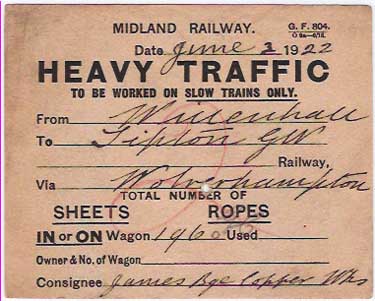 MIDLAND RAILWAY. G. F. 804.
Date June 2 1922
HEAVY TRAFFIC
TO BE WORKED ON SLOW TRAINS ONLY.
From Willenhall
To Tipton GW
Railway,
Via Wolverhampton
TOTAL NUMBER OF
SHEETS ROPES
IN or ON Wagon 196 Used
Owner & No. of Wagon
Consignee James Bge Copper Wks